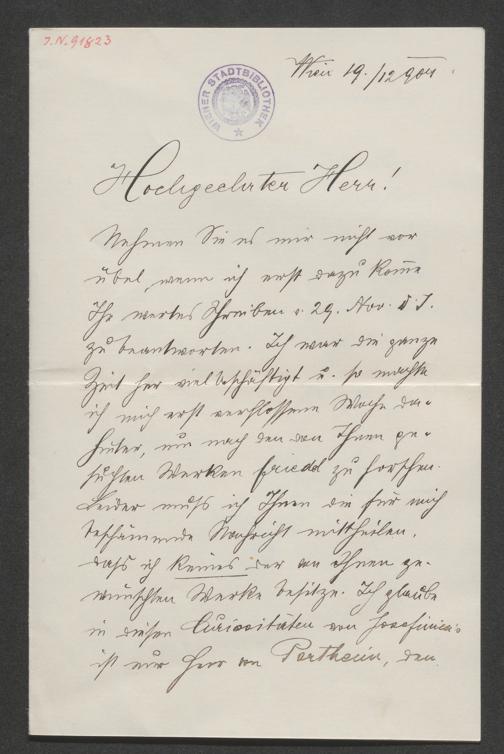 J.N. 91823
Wien 19./12 904.
WIENER STADTBIBLIOTHEK
Hochgeehrter Herr!
Nehmen Sie es mir nicht vor
übel, wenn ich erst dazu kome
Ihr wertes Schreiben v. 29. Nov. d. J.
zu beantworten. Ich war die ganze
Zeit her viel beschäftigt u. so machte
ich mich erst verflossene Woche da-
hinter, um nach den von Ihnen ge-
suchten Werken Friedel zu forschen.
Leider muß ich Ihnen die für mich
beschämende Nachricht mittheilen,
dass ich keines der von Ihnen ge-
wünschten Werke besitze. Ich glaube
in diesen Curiositäten von
ist nur Herr von Portheim, den